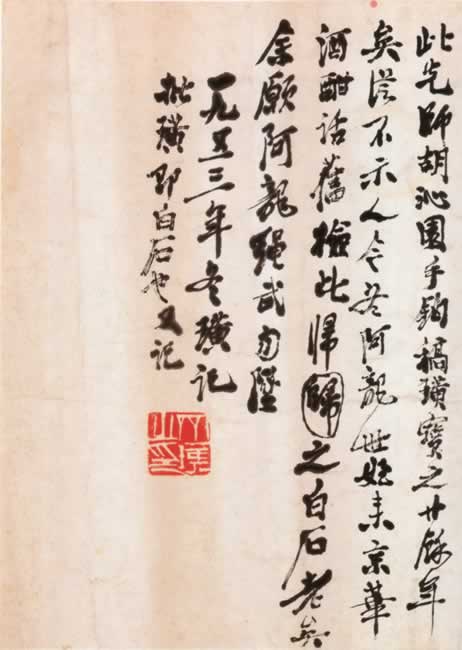 此先師胡沁園手鈎稿璜寶之廿餘年
矣從不示人今阿龍世姪来京華
酒酣話舊撿此帰歸之白石老矣
余願阿龍繩武勿墜
一九五三年冬璜記
璜即白石也又記